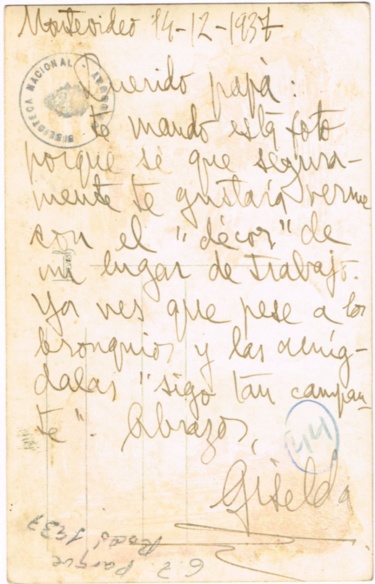 Montevideo 14-12-1937
BIBLIOTECA NACIONAL
Querido papá:
te mando esta foto
porque sé que segura-
mente te gustará verme
con el "décor" de
mi lugar de trabajo.
Ya ves que pese a los
bronquios y las amíg-
dalas "sigo tan campan-
te". Abrazos,
44
Giselda
G Z Parque
Rodó 1937